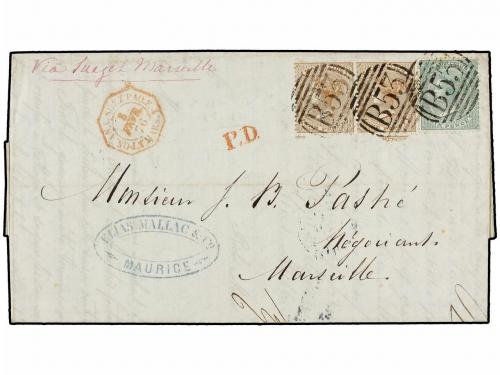 Via Suez & Marseille
B53 B53 B53
P.D.
Monsieur J. B. Pashé
Négociant.
Marseille.
ELIAS MALLAC & Co
MAURICE